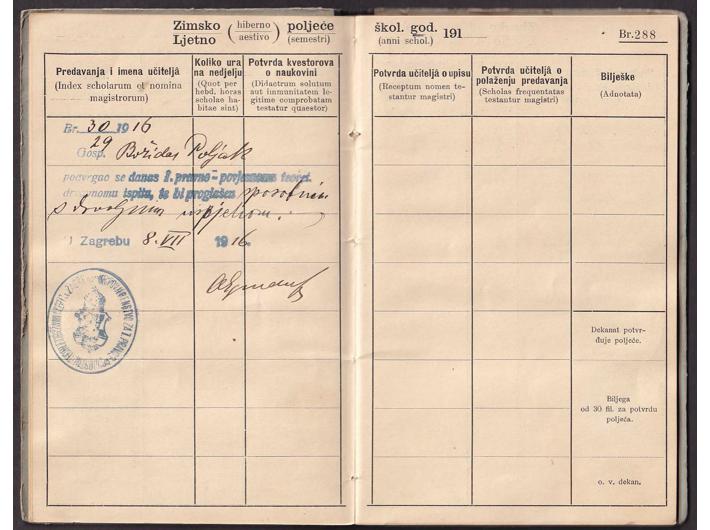 Zimsko (hiberno) poljeće
Ljetno (aestivo) (semestri)
Predavanja i imena učiteljâ
(Index scholarum et nomina magistrorum)
Koliko ura na nedjelju
(Quot per hebd. horas scholae habitae sint)
Potvrda kvestorova o naukovini
(Didactrum solutum aut immunitatem legitime comprobatam testatur quaestor)
Br. 30 1916
29
Gosp. Božidar Poljak
podvrgao se danas I. pravno-povjesnomu teoret.
državnomu ispitu, te bi proglašen sposobnim
s dovoljnim uspjehom.
U Zagrebu 8. VII 1916.
škol. god. 191
(anni schol.)
Br. 288
Potvrda učiteljâ o upisu
(Receptum nomen testantur magistri)
Potvrda učiteljâ o polaženju predavanja
(Scholas frequentatas testantur magistri)
Bilješke
(Adnotata)
Dekanat potvrđuje poljeće.
Biljega
od 30 fil. za potvrdu
poljeća.
o. v. dekan.